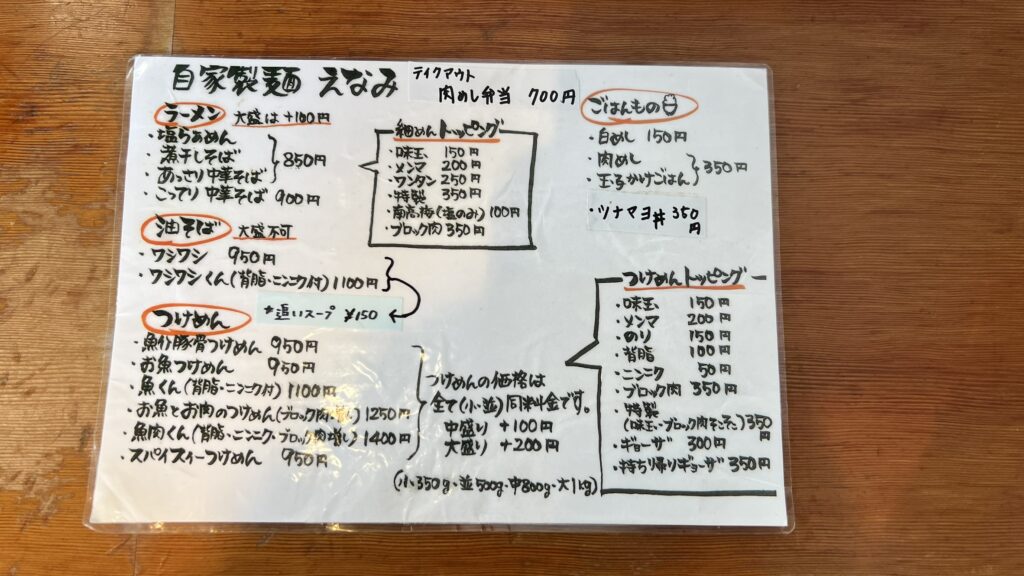 自家製麺 えなみ
テイクアウト
肉めし弁当 700円
ラーメン 大盛は+100円
・塩らぁめん
・煮干しそば
・あっさり中華そば
850円
・こってり中華そば 900円
油そば 大盛不可
・ワシワシ 950円
・ワシワシくん(背脂・ニンニク付) 1100円
+追いスープ ¥150
つけめん
・魚介豚骨つけめん 950円
・お魚つけめん 950円
・魚くん(背脂・ニンニク付) 1100円
・お魚とお肉のつけめん(ブロック肉増し) 1250円
・魚肉くん(背脂・ニンニク・ブロック肉増し) 1400円
・スパイスィーつけめん 950円
つけめんの価格は
全て(小・並)同料金です。
中盛り +100円
大盛り +200円
(小350g・並500g・中800g・大1kg)
細めんトッピング
・味玉 150円
・メンマ 200円
・ワンタン 250円
・特製 350円
・南高梅(塩のみ) 100円
・ブロック肉 350円
ごはんもの
・白めし 150円
・肉めし
・玉子かけごはん
350円
・ツナマヨ丼 350円
つけめんトッピング
・味玉 150円
・メンマ 200円
・のり 150円
・背脂 100円
・ニンニク 50円
・ブロック肉 350円
・特製
(味玉・ブロック肉・) 350円
・ギョーザ 300円
・持ち帰りギョーザ 350円